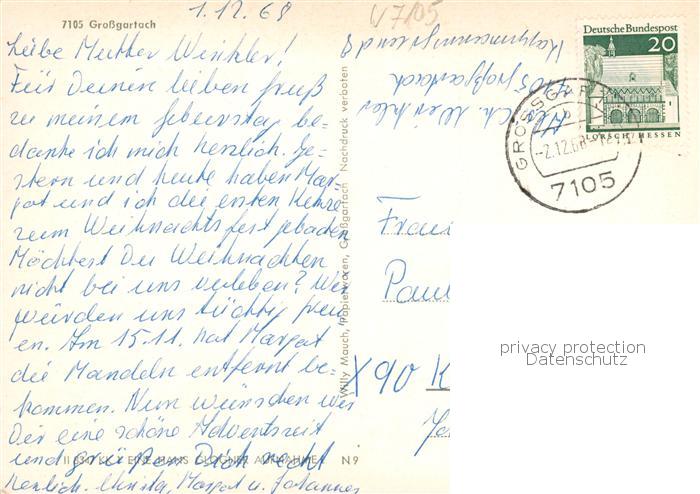 1.12.68
V7105
7105 Großgartach
Liebe Mutter Winkler!
Für Deinen lieben Gruß
zu meinem Geburtstag be-
danke ich mich herzlich. Ge-
stern und heute haben Mar-
got und ich die ersten Kekse
zum Weihnachtsfest gebacken
Möchtest Du Weihnachten
nicht bei uns verleben? Wir
würden uns tüchtig freu-
en. Am 15.11. hat Margot
die Mandeln entfernt be-
kommen. Nun wünschen wir
Dir eine schöne Adventszeit
und grüßen Dich recht
herzlich. Christa, Margot u. Johannes
EINE HANS AUFNAHME N9
Willy Mauch, Papierwaren, Großgartach Nachdruck verboten
7105 Großgartach
Deutsche Bundespost
20
LORSCH/HESSEN
GROSSGARTACH
-2.12.68
7105
Frau
X90 K
privacy protection
Datenschutz